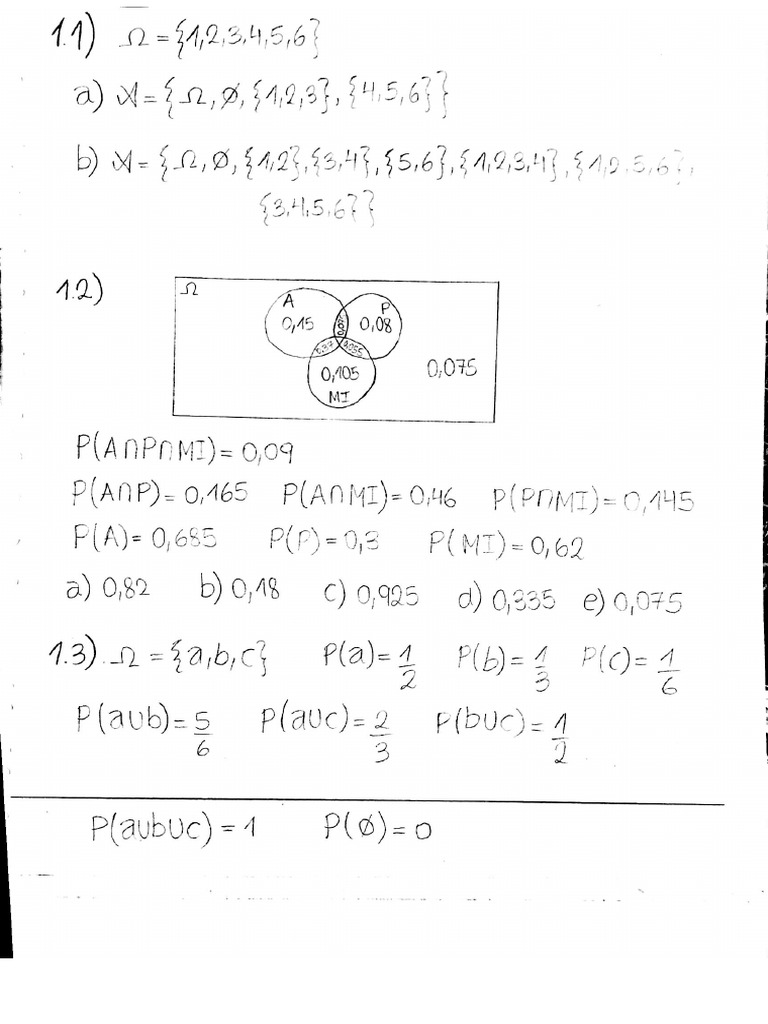 1.1) Ω = {1,2,3,4,5,6}
a) 𝒜 = { Ω, ∅, {1,2,3}, {4,5,6}}
b) 𝒜 = { Ω, ∅, {1,2}, {3,4}, {5,6}, {1,2,3,4}, {1,2,5,6},
{3,4,5,6}}
1.2)
Ω
A P
0,15 0,08
0,055
0,105 0,075
MI
P(A∩P∩MI) = 0,09
P(A∩P) = 0,165 P(A∩MI) = 0,46 P(P∩MI) = 0,145
P(A) = 0,685 P(P) = 0,3 P(MI) = 0,62
a) 0,82 b) 0,18 c) 0,925 d) 0,335 e) 0,075
1.3) Ω = {a,b,c} P(a) = 1/2 P(b) = 1/3 P(c) = 1/6
P(a∪b) = 5/6 P(a∪c) = 2/3 P(b∪c) = 1/2
P(a∪b∪c) = 1 P(∅) = 0